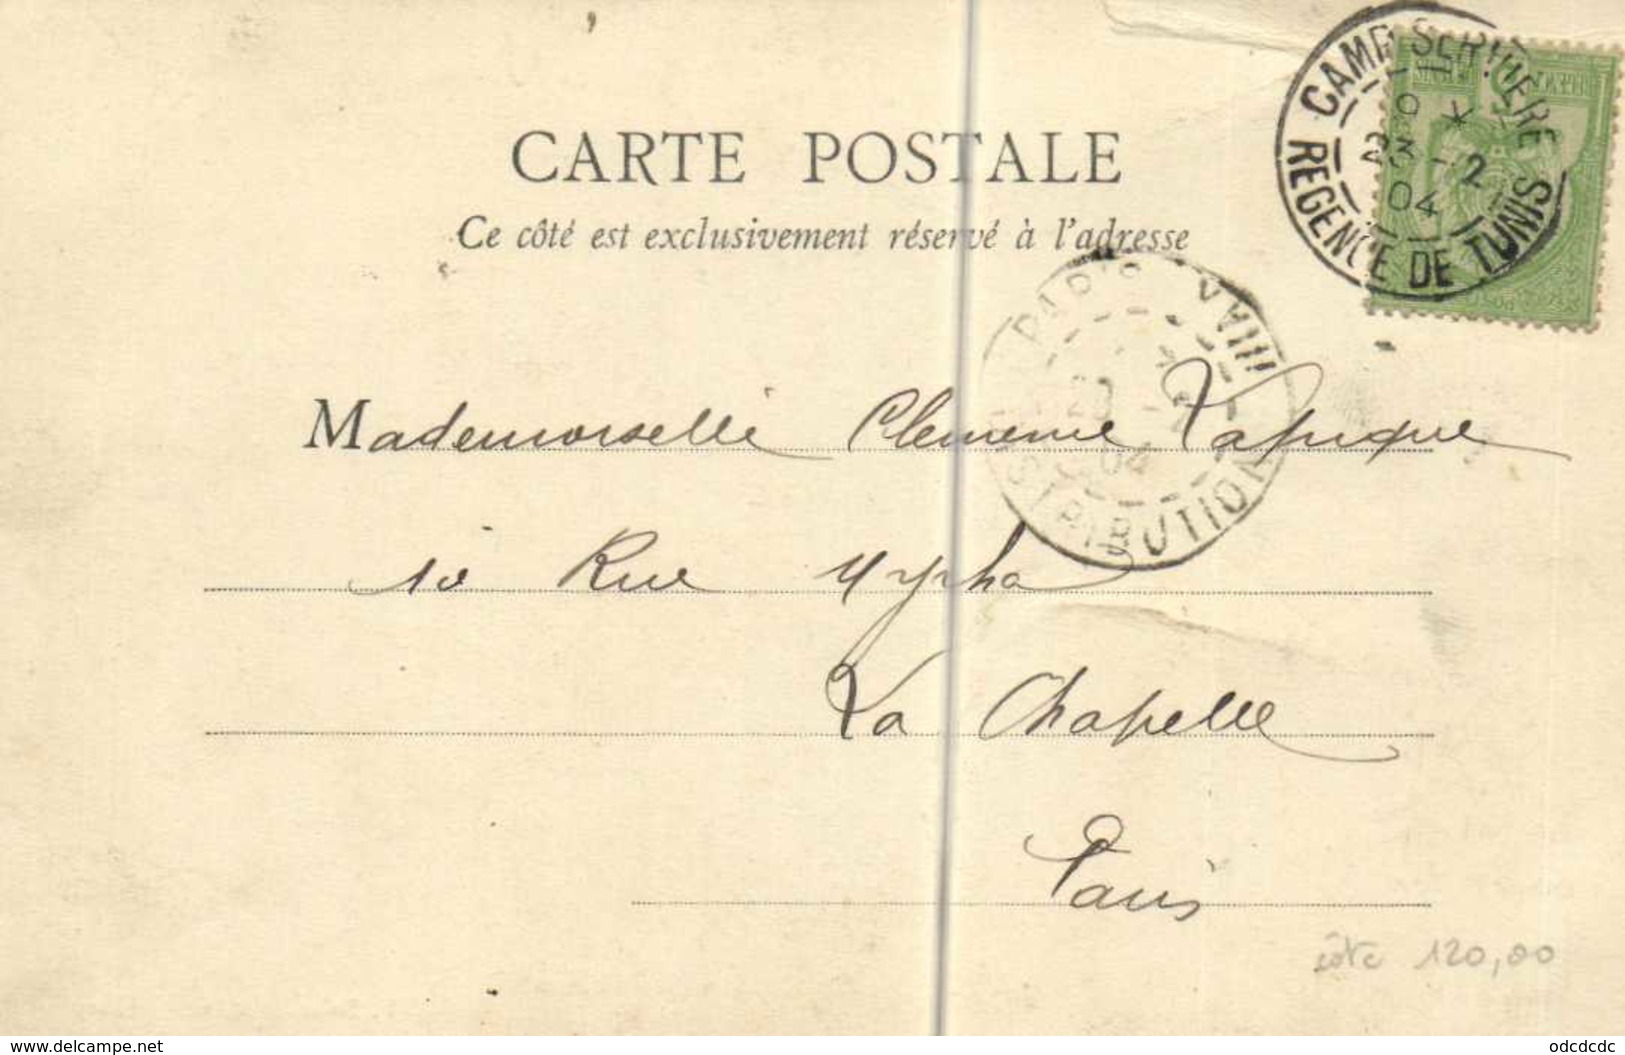 CAMP SERVIERE
23 - 2
04
REGENCE DE TUNIS
CARTE POSTALE
Ce côté est exclusivement réservé à l'adresse
PARIS XVIII
04
DISTRIBUTION
Mademoiselle Clemence
10 Rue Myrha
La Chapelle
Paris
côte 120,00
www.delcampe.net
odcdcdc